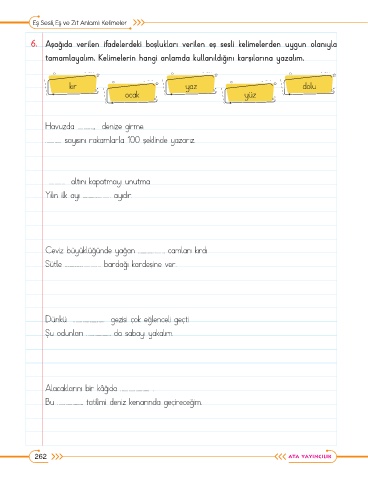 Eş Sesli, Eş ve Zıt Anlamlı Kelimeler
6. Aşağıda verilen ifadelerdeki boşlukları verilen eş sesli kelimelerden uygun olanıyla
tamamlayalım. Kelimelerin hangi anlamda kullanıldığını karşılarına yazalım.
kır ocak yaz yüz dolu
Havuzda ............, denize girme.
............ sayısını rakamlarla 100 şeklinde yazarız.
............ altını kapatmayı unutma.
Yılın ilk ayı ............ ayıdır.
Ceviz büyüklüğünde yağan ............ camları kırdı.
Sütle ............ bardağı kardeşine ver.
Dünkü ............ gezisi çok eğlenceli geçti.
Şu odunları ............ da sobayı yakalım.
Alacaklarını bir kâğıda ............
Bu ............ tatilimi deniz kenarında geçireceğim.
262
ATA YAYINCILIK